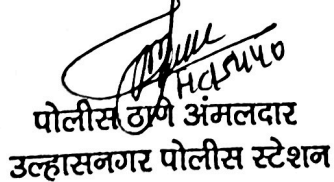 HC/5440
पोलीस ठाणे अंमलदार
उल्हासनगर पोलीस स्टेशन